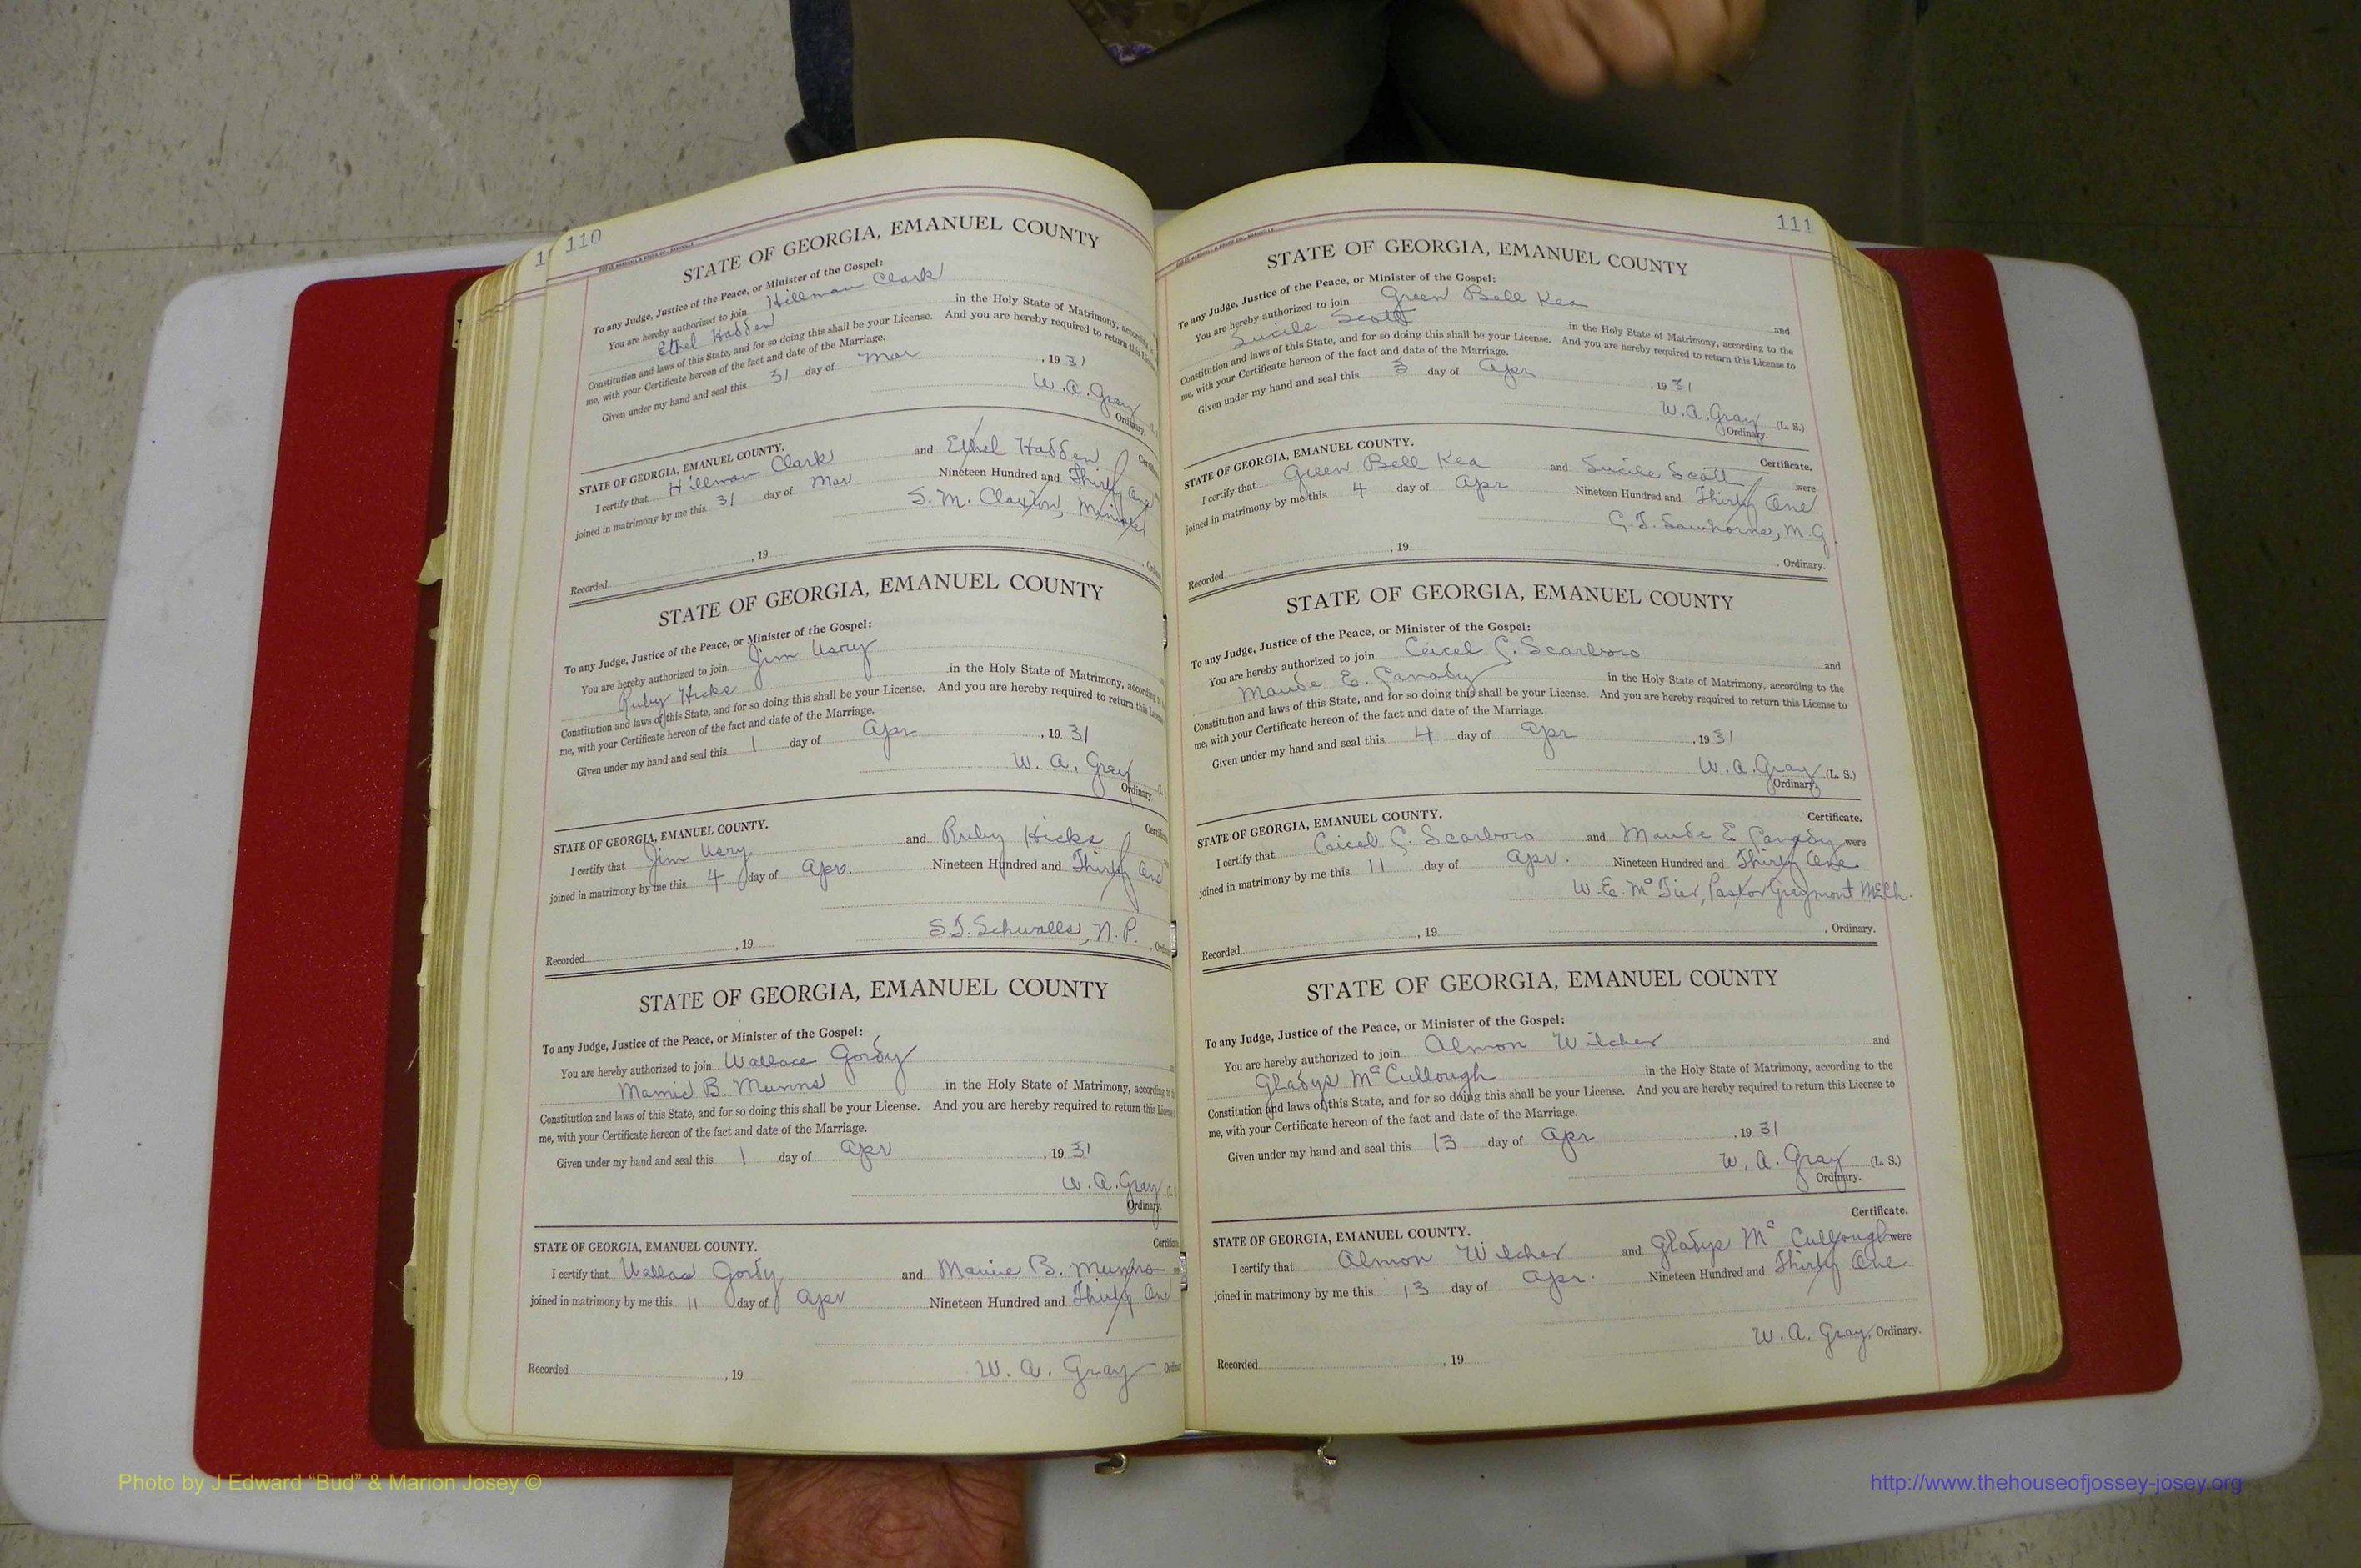 110
STATE OF GEORGIA, EMANUEL COUNTY
To any Judge, Justice of the Peace, or Minister of the Gospel:
You are hereby authorized to join Hillman Clark
Ethel Hadden in the Holy State of Matrimony, according
Constitution and laws of this State, and for so doing this shall be your License. And you are hereby required to return this
me, with your Certificate hereon of the fact and date of the Marriage.
Given under my hand and seal this 31 day of Mar , 1931
W. A. Gray
Ordinary.
STATE OF GEORGIA, EMANUEL COUNTY.
I certify that Hillman Clark and Ethel Hadden
joined in matrimony by me this 31 day of Mar Nineteen Hundred and Thirty One
S. M. Claxton, Minister
Recorded , 19
STATE OF GEORGIA, EMANUEL COUNTY
To any Judge, Justice of the Peace, or Minister of the Gospel:
You are hereby authorized to join Jim Usry
Ruby Hicks in the Holy State of Matrimony, according
Constitution and laws of this State, and for so doing this shall be your License. And you are hereby required to return this
me, with your Certificate hereon of the fact and date of the Marriage.
Given under my hand and seal this 1 day of Apr , 1931
W. A. Gray
Ordinary.
STATE OF GEORGIA, EMANUEL COUNTY.
I certify that Jim Usry and Ruby Hicks
joined in matrimony by me this 4 day of Apr. Nineteen Hundred and Thirty One
S.T. Schwalls, N.P.
Recorded , 19
STATE OF GEORGIA, EMANUEL COUNTY
To any Judge, Justice of the Peace, or Minister of the Gospel:
You are hereby authorized to join Wallace Gordy
Mamie B. Munns in the Holy State of Matrimony, according
Constitution and laws of this State, and for so doing this shall be your License. And you are hereby required to return this
me, with your Certificate hereon of the fact and date of the Marriage.
Given under my hand and seal this 1 day of Apr , 1931
W. A. Gray
Ordinary.
STATE OF GEORGIA, EMANUEL COUNTY.
I certify that Wallace Gordy and Mamie B. Munns
joined in matrimony by me this 11 day of Apr Nineteen Hundred and Thirty One
Recorded , 19 W. A. Gray
111
STATE OF GEORGIA, EMANUEL COUNTY
To any Judge, Justice of the Peace, or Minister of the Gospel:
You are hereby authorized to join Green Bell Kea and
Lucile Scott in the Holy State of Matrimony, according to the
Constitution and laws of this State, and for so doing this shall be your License. And you are hereby required to return this License to
me, with your Certificate hereon of the fact and date of the Marriage.
Given under my hand and seal this 3 day of Apr , 1931
W. A. Gray (L. S.)
Ordinary.
STATE OF GEORGIA, EMANUEL COUNTY. Certificate.
I certify that Green Bell Kea and Lucile Scott were
joined in matrimony by me this 4 day of Apr Nineteen Hundred and Thirty One
M.G.
Recorded , 19 , Ordinary.
STATE OF GEORGIA, EMANUEL COUNTY
To any Judge, Justice of the Peace, or Minister of the Gospel:
You are hereby authorized to join Ceicel C. Scarboro and
Maude E. Canady in the Holy State of Matrimony, according to the
Constitution and laws of this State, and for so doing this shall be your License. And you are hereby required to return this License to
me, with your Certificate hereon of the fact and date of the Marriage.
Given under my hand and seal this 4 day of Apr , 1931
W. A. Gray (L. S.)
Ordinary.
STATE OF GEORGIA, EMANUEL COUNTY. Certificate.
I certify that Ceicel C. Scarboro and Maude E. Canady were
joined in matrimony by me this 11 day of Apr. Nineteen Hundred and Thirty One
W. E. McTier, Pastor Graymont
Recorded , 19 , Ordinary.
STATE OF GEORGIA, EMANUEL COUNTY
To any Judge, Justice of the Peace, or Minister of the Gospel:
You are hereby authorized to join Almon Wilcher and
Gladys McCullough in the Holy State of Matrimony, according to the
Constitution and laws of this State, and for so doing this shall be your License. And you are hereby required to return this License to
me, with your Certificate hereon of the fact and date of the Marriage.
Given under my hand and seal this 13 day of Apr , 1931
W. A. Gray (L. S.)
Ordinary.
STATE OF GEORGIA, EMANUEL COUNTY. Certificate.
I certify that Almon Wilcher and Gladys McCullough were
joined in matrimony by me this 13 day of Apr. Nineteen Hundred and Thirty One
W. A. Gray, Ordinary.
Recorded , 19
Photo by J Edward “Bud” & Marion Josey ©
http://www.thehouseofjossey-josey.org